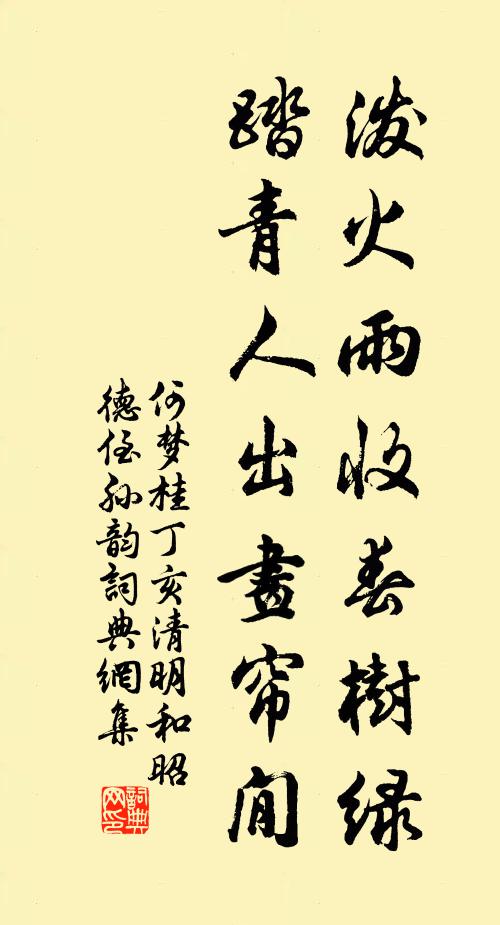 泼火雨收春樹绿
踏青人出畫帘閒
何梦桂丁亥清明和昭
德侄孙韵詞典網集
詞典
网印